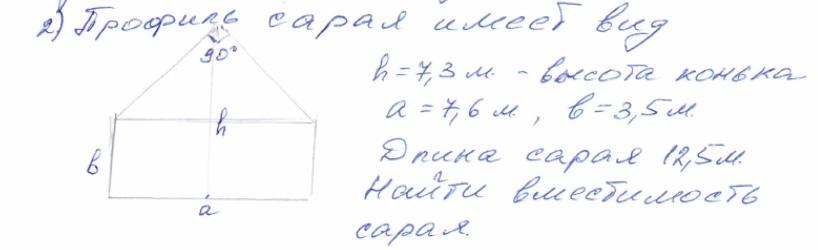 2) Профиль сарая имеет вид
90°
h = 7,3 м. - высота конька
h
a = 7,6 м, в = 3,5 м.
в
Длина сарая 12,5 м.
Найти вместимость
a
сарая.